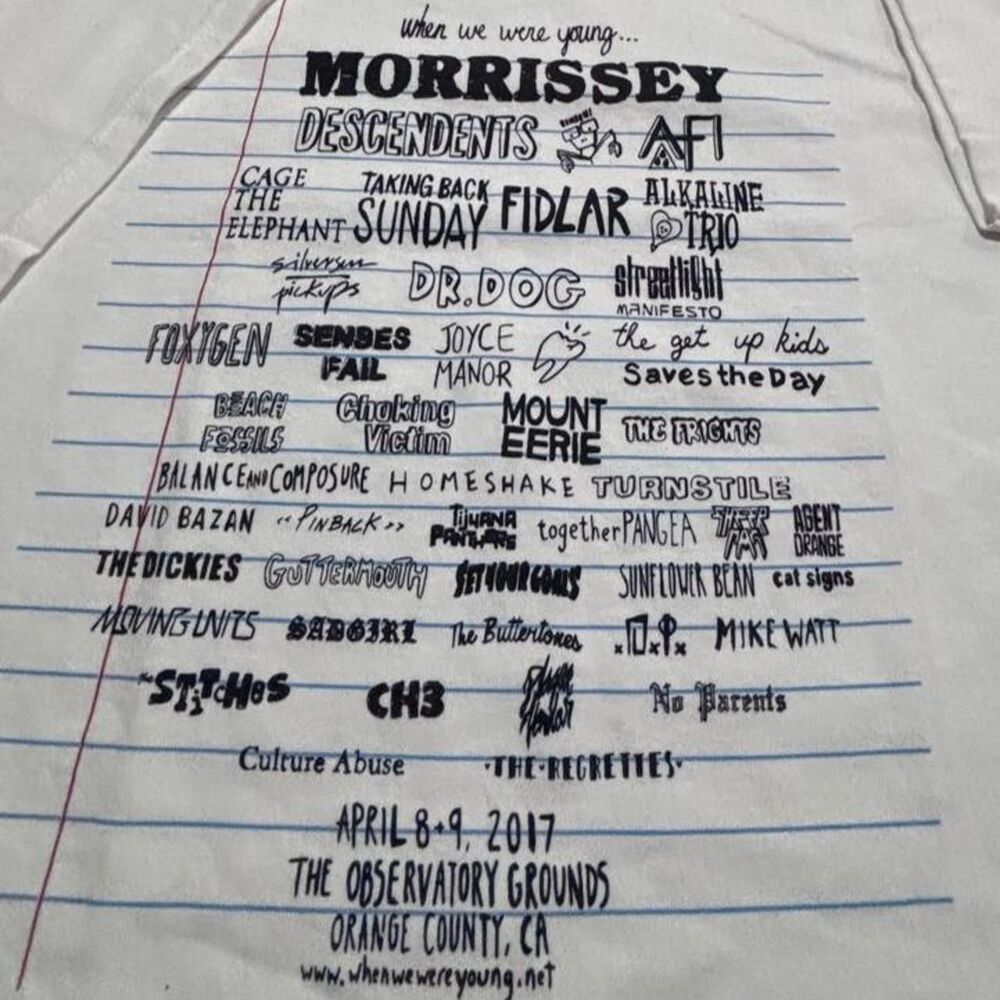 when we were young...
MORRISSEY
DESCENDENTS AFI
CAGE THE ELEPHANT TAKING BACK SUNDAY FIDLAR ALKALINE TRIO
silversun pickups DR. DOG streetlight MANIFESTO
FOXYGEN SENSES FAIL JOYCE MANOR the get up kids
Saves the Day
BEACH FOSSILS Choking Victim MOUNT EERIE THE FRIGHTS
BALANCE AND COMPOSURE HOMESHAKE TURNSTILE
DAVID BAZAN "PINBACK" TIJUANA PANTHERS together PANGEA CHEAP AGENT ORANGE
THE DICKIES GUTTERMOUTH SET YOUR GOALS SUNFLOWER BEAN cat signs
MOVING UNITS SADGIRL The Buttertones MIKE WATT
THE STITCHES CH3 No Parents
Culture Abuse THE REGRETTES
APRIL 8+9, 2017
THE OBSERVATORY GROUNDS
ORANGE COUNTY, CA
www.whenwewereyoung.net